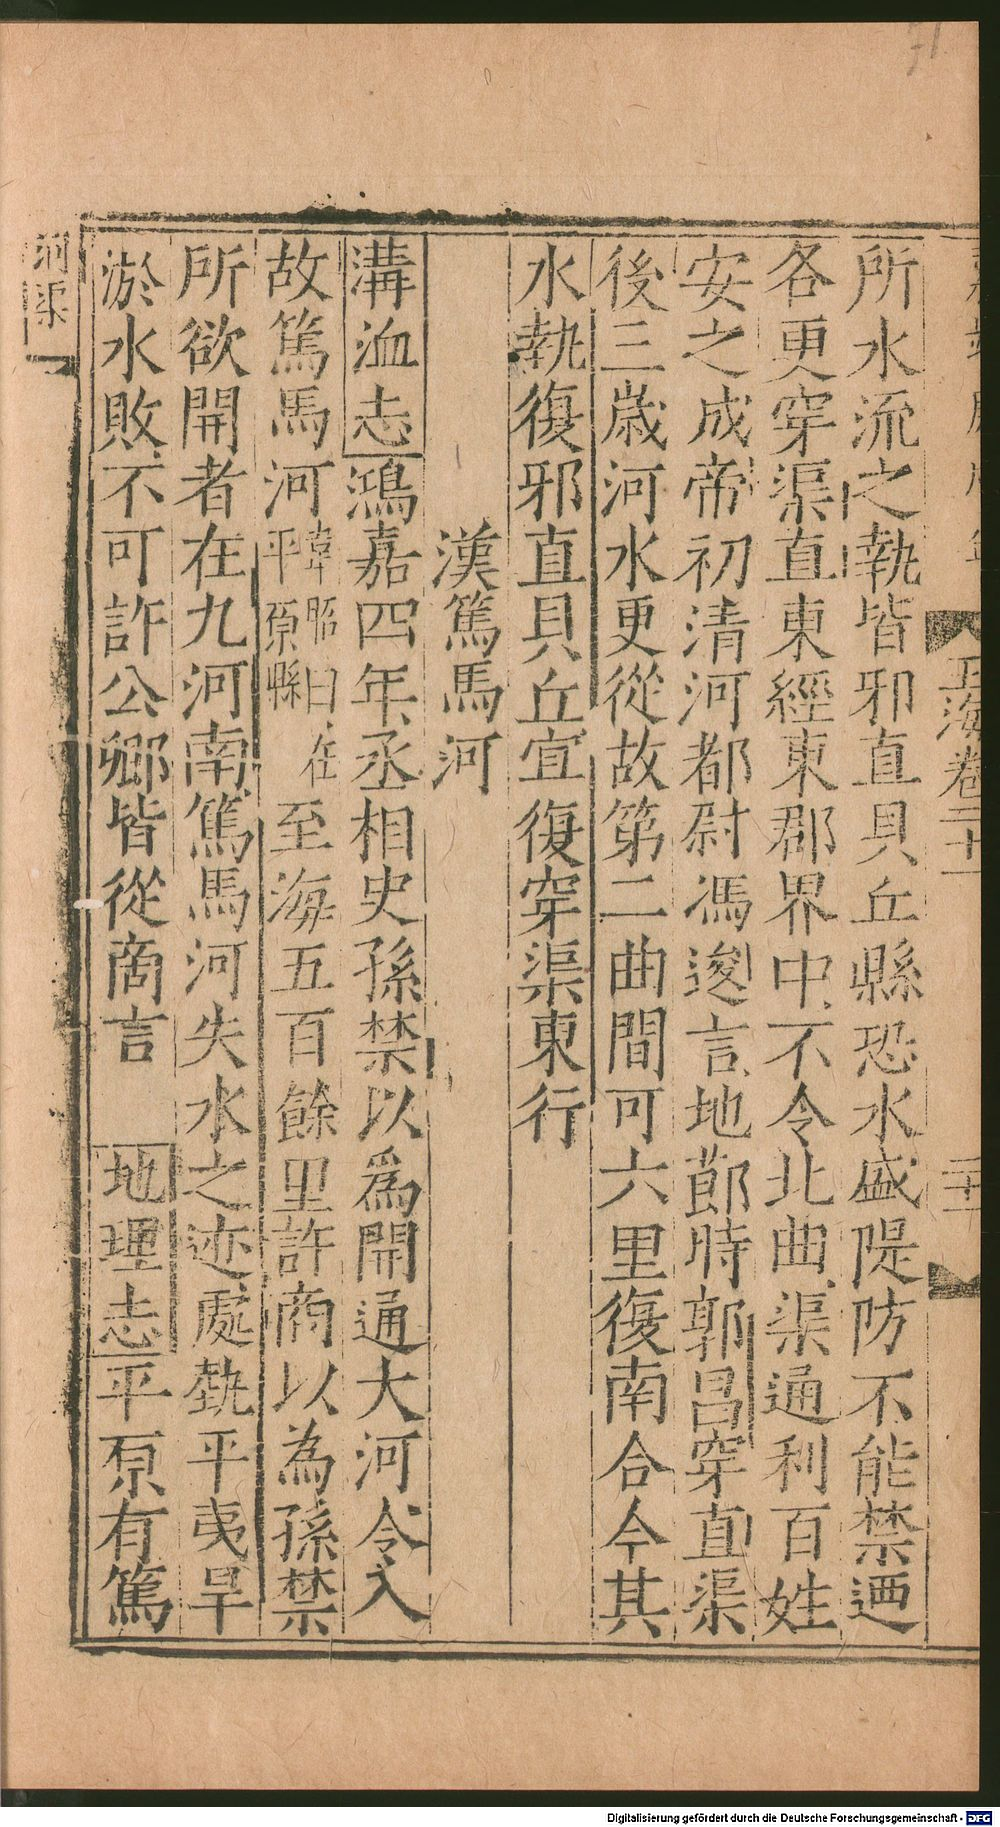 玉海卷二十一
二十二
所水流之埶皆邪直貝丘縣恐水盛隄防不能禁迺
各更穿渠直東經東郡界中不令北曲渠通利百姓
安之成帝初清河都尉馮逡言地節時郭昌穿直渠
後三歲河水更從故第二曲間可六里復南合今其
水埶復邪直貝丘宜復穿渠東行
漢篤馬河
溝洫志鴻嘉四年丞相史孫禁以爲開通大河令入
故篤馬河韋昭曰在平原縣至海五百餘里許商以為孫禁
所欲開者在九河南篤馬河失水之迹處埶平夷旱
淤水敗不可許公卿皆從商言　地理志平原有篤
河渠
Digitalisierung gefördert durch die Deutsche Forschungsgemeinschaft - DFG